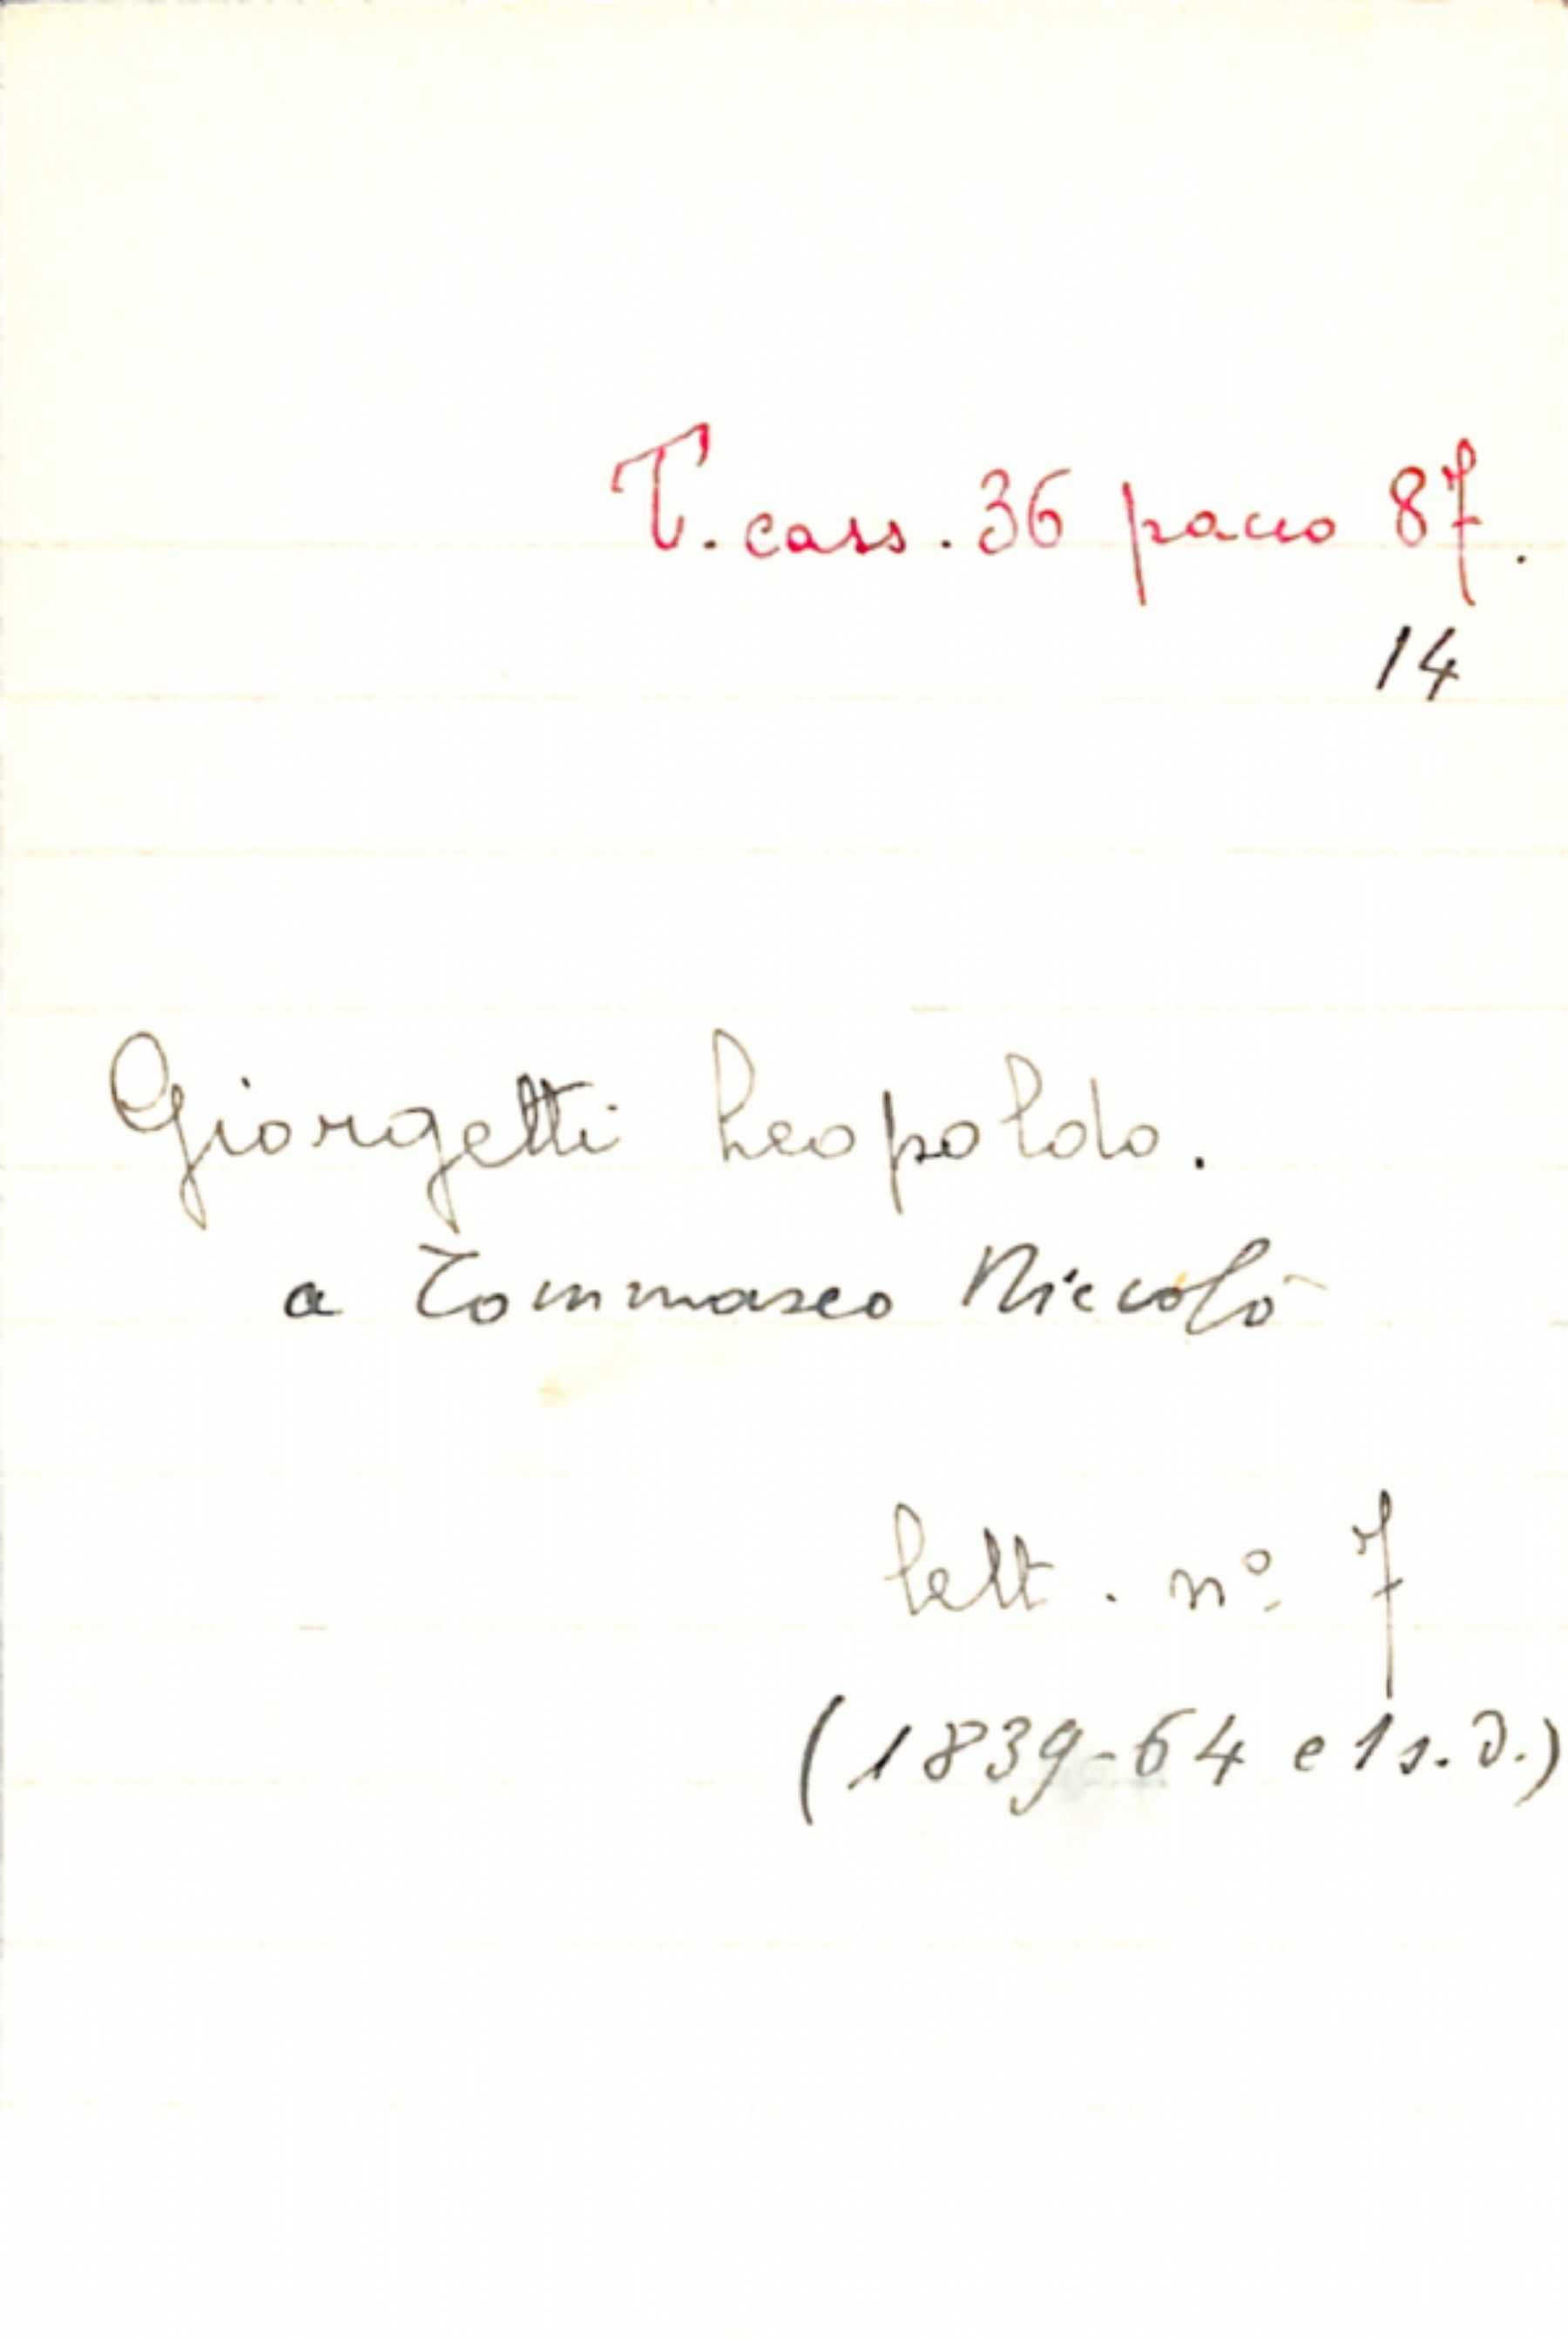 T. cass. 36 pacco 87.
14
Giorgetti Leopoldo.
a Tommaseo Niccolò
lett. nº 7
(1839-64 e 1 s.d.)